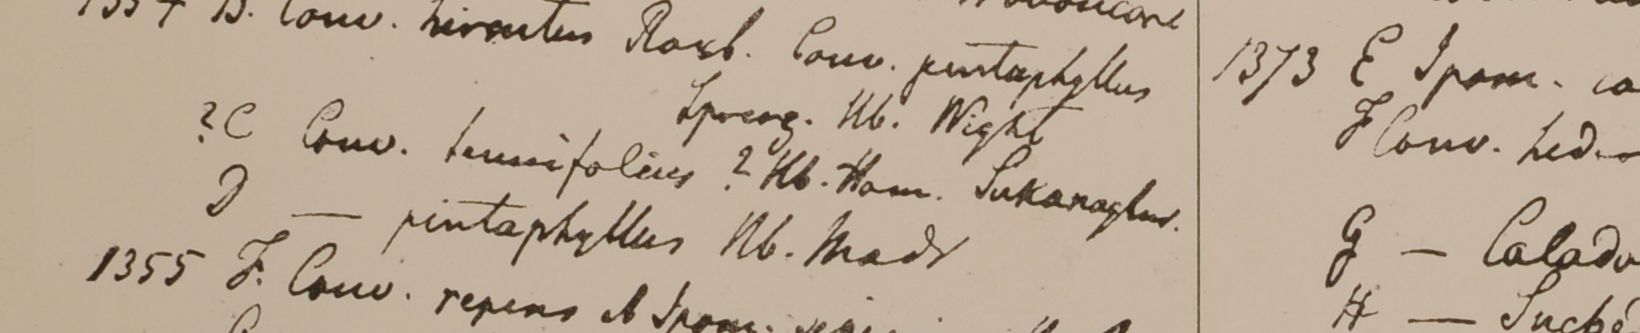 1354 B. Conv. hirsutus Roxb. Conv. pentaphyllus
Spreng. Hb. Wight
?C Conv. tenuifolius ? Hb. Ham. Sukanaghur.
D — pentaphyllus Hb. Madr
1355 F. Conv. repens & Ipom.
1373 E Ipom. ca
F Conv. hed
G — Calado
H — Sucké